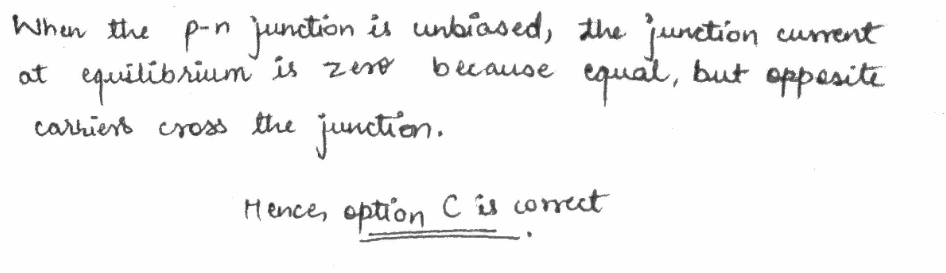 When the p-n junction is unbiased, the junction current
at equilibrium is zero because equal, but opposite
carriers cross the junction.
Hence, option C is correct.